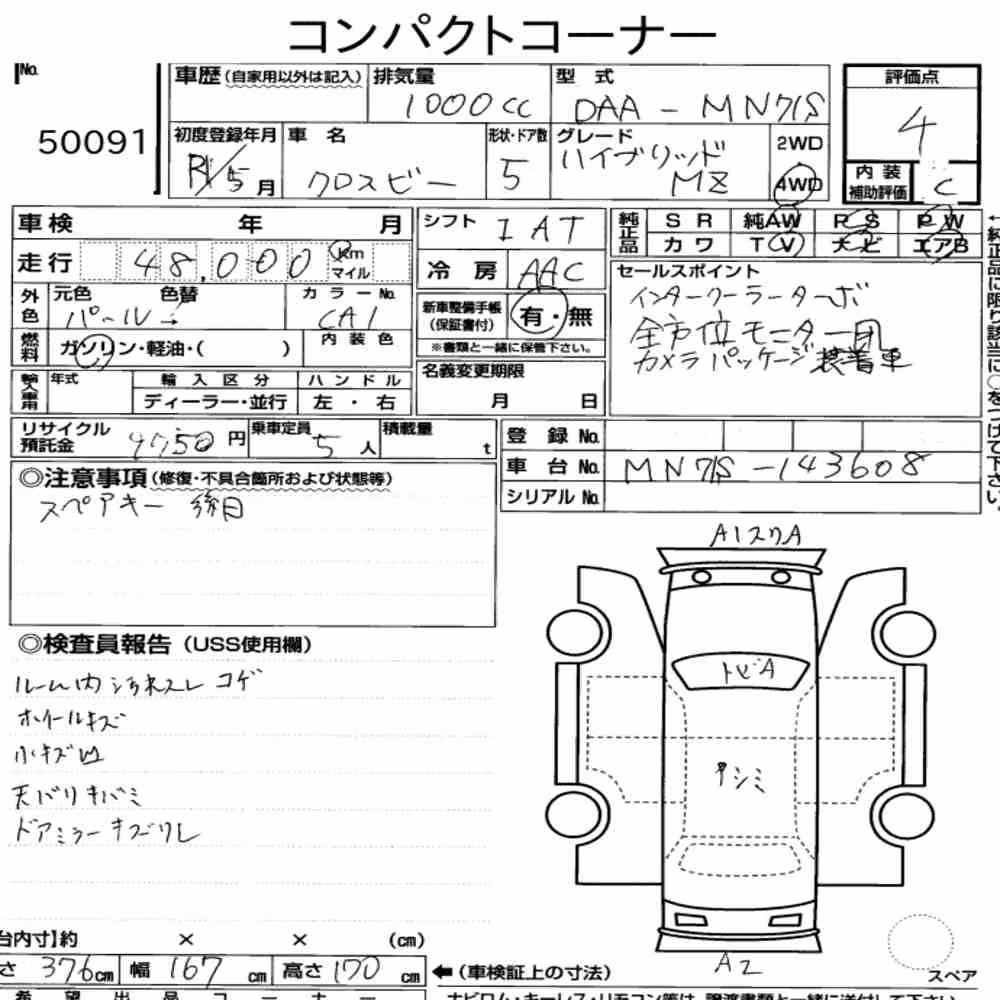 コンパクトコーナー
No. 50091
車歴(自家用以外は記入) 排気量 1000cc 型式 DAA-MN71S
評価点 4
初度登録年月 R1/5月 車名 クロスビー 形状・ドア数 5 グレード ハイブリッド MZ 2WD 4WD
内装補助評価 C
車検 年 月
走行 48,000 Km マイル
外色 元色 パール→ 色替 カラーNo. CA1
燃料 ガソリン・軽油・( ) 内装色
輸入車用 年式 輸入区分 ディーラー・並行 ハンドル 左・右
シフト IAT
冷房 AAC
新車整備手帳(保証書付) 有・無
※書類と一緒に保管下さい。
名義変更期限 月 日
純正品 SR 純AW PS PW
カワ TV ナビ エアB
←純正品に限り該当に○をつけて下さい。
セールスポイント
インタークーラーターボ
全方位モニター用
カメラパッケージ装着車
リサイクル預託金 9750円 乗車定員 5人 積載量 t
登録No.
車台No. MN71S-143608
シリアルNo.
◎注意事項(修復・不具合箇所および状態等)
スペアキー 後日
◎検査員報告(USS使用欄)
コゲ
ホイールキズ
小キズ凹
天バリキバミ
ドアミラーキズ
トビA
シミ
A2
スペア
台内寸】約 × × (cm)
さ 376cm 幅 167cm 高さ 170cm ←(車検証上の寸法)
希望出品コーナー